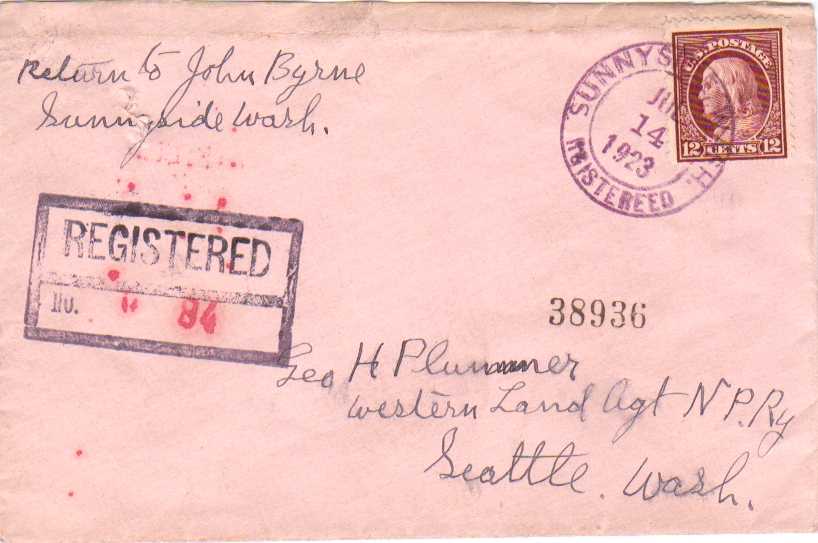 Return to John Byrne
Sunnyside Wash.
SUNNYS WASH.
14
1923
REGISTERED
U.S. POSTAGE
12 CENTS 12
REGISTERED
No. 84
38936
Geo H Plummer
Western Land Agt N P. Ry
Seattle. Wash.